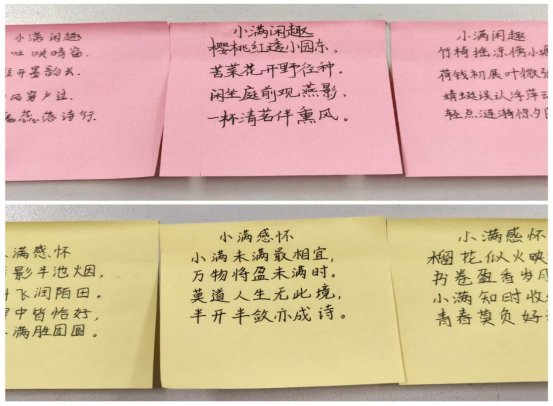 小满闲趣
吐
开墨韵长
风穿户
落诗行
小满闲趣
樱桃红透小园东,
苦菜花开野径种。
闲坐庭前观燕影,
一杯清茗伴熏风。
小满闲趣
竹椅摇凉傍小
荷钱初展叶微张
蜻蜓误认浮萍
轻点涟漪惊夕
小满感怀
影半池烟,
飞润陌田。
中皆恰好,
满胜团圆。
小满感怀
小满未满最相宜,
万物将盈未满时。
莫道人生无此境,
半开半敛亦成诗。
小满感怀
榴花似火映
书卷盈香岁月
小满知时收
青春莫负好